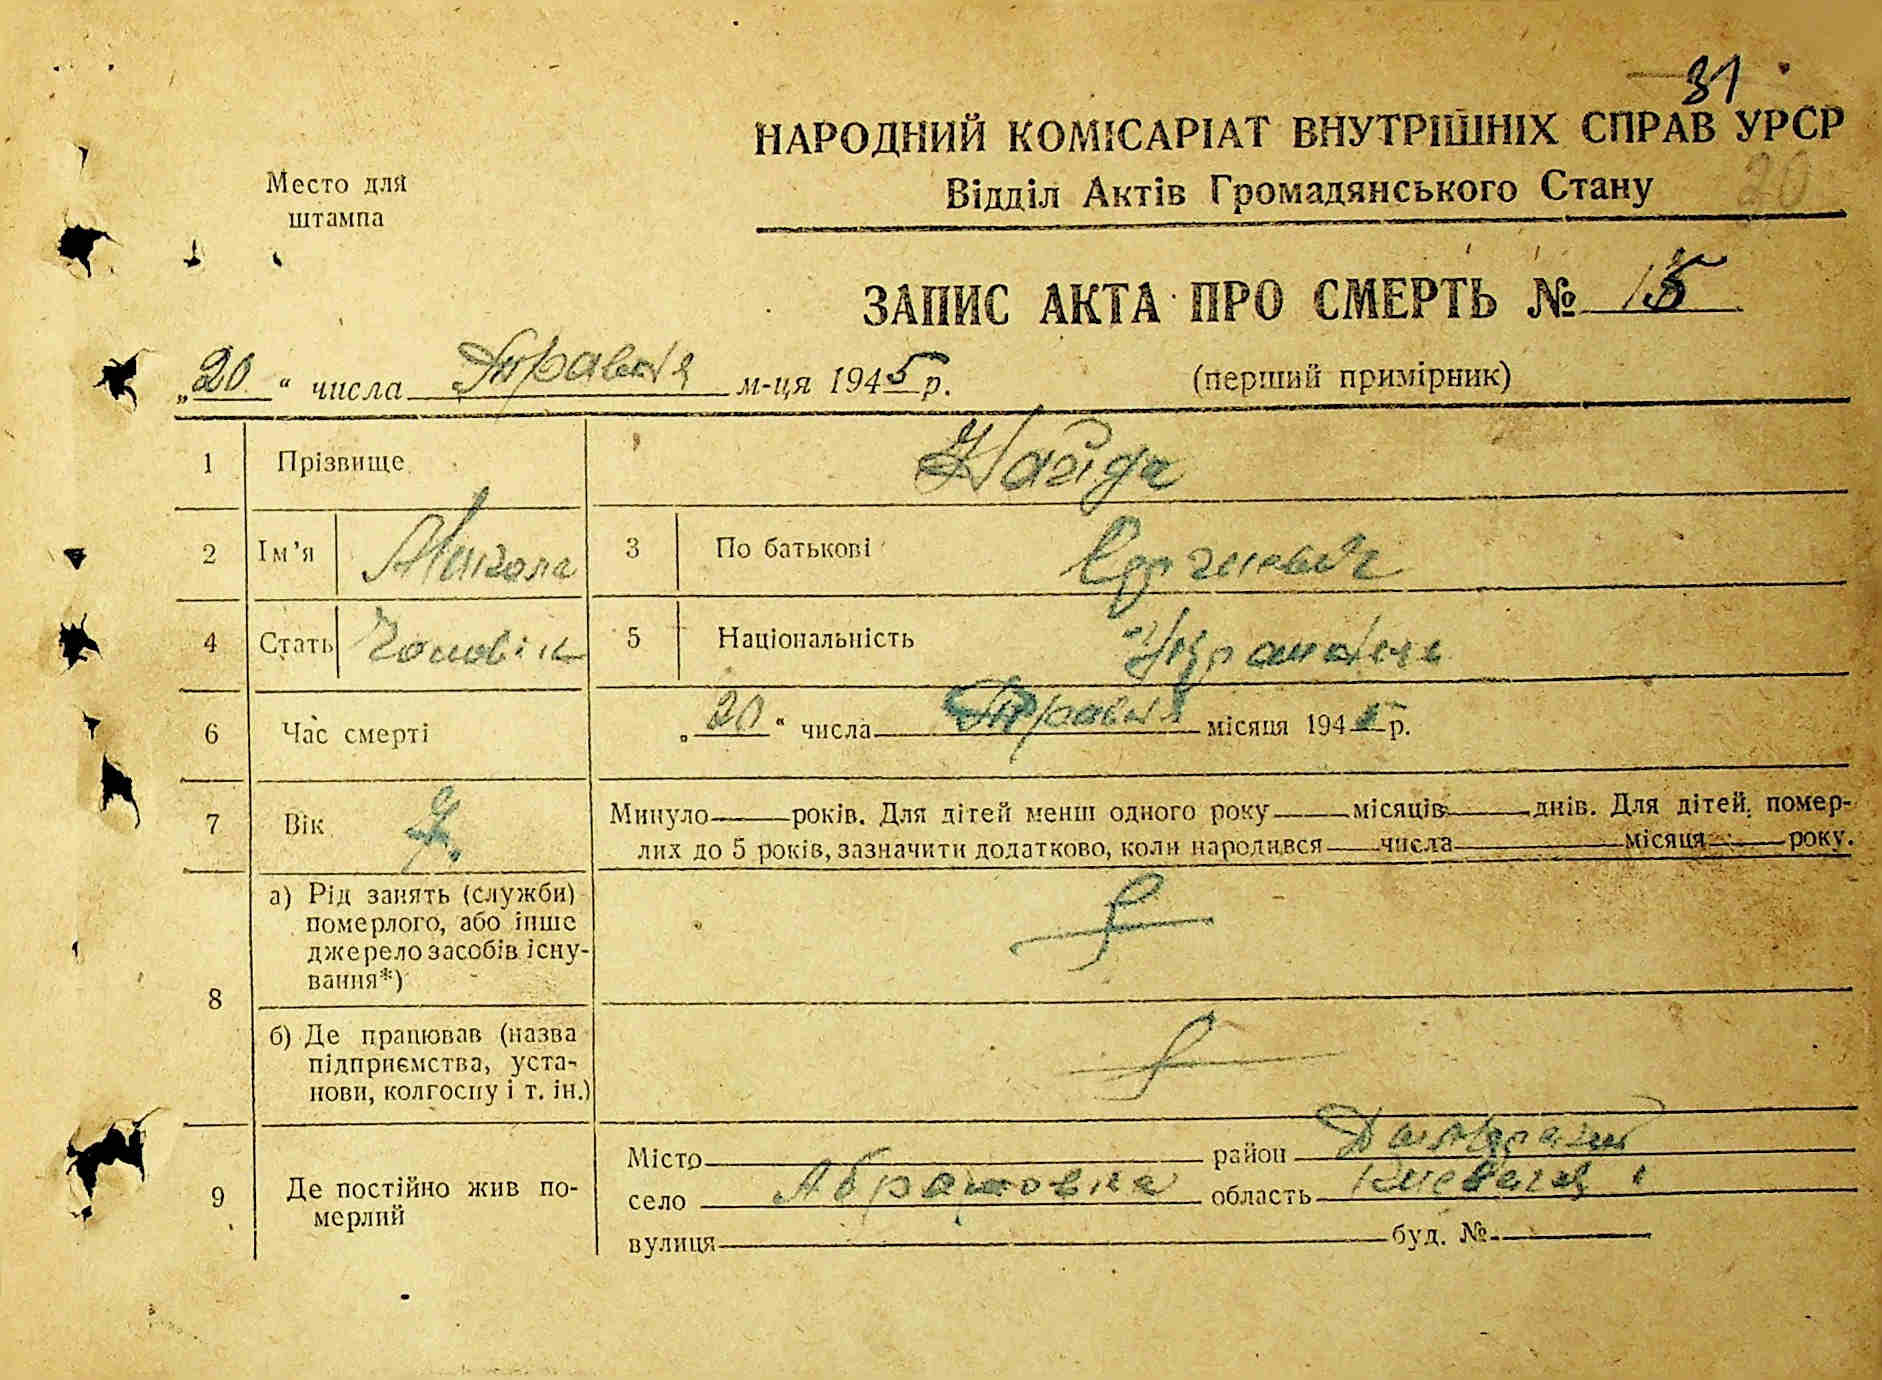 31
НАРОДНИЙ КОМІСАРІАТ ВНУТРІШНІХ СПРАВ УРСР
Відділ Актів Громадянського Стану 20
Место для
штампа
ЗАПИС АКТА ПРО СМЕРТЬ № 15
„20“ числа Травня м-ця 1945 р.
(перший примірник)
1 Прізвище Найда
2 Ім’я Микола 3 По батькові
4 Стать Чоловік 5 Національність
6 Час смерті „20“ числа Травня місяця 1945 р.
7 Вік Минуло років. Для дітей менш одного року місяців днів. Для дітей, помер-
лих до 5 років, зазначити додатково, коли народився числа місяця року.
8 а) Рід занять (служби)
померлого, або інше
джерело засобів існу-
вання*)
б) Де працював (назва
підприємства, уста-
нови, колгоспу і т. ін.)
9 Де постійно жив по-
мерлий
Місто район
село область
вулиця буд. №